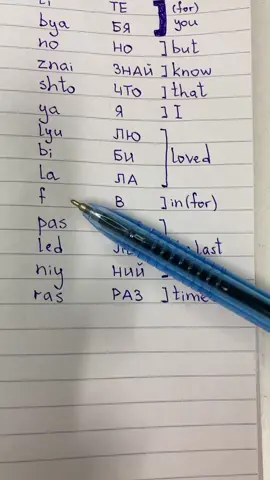 ТЕ (for)
bya БЯ you
no НО ] but
znai ЗНАЙ ] know
shto ЧТО ] that
ya Я ] I
lyu ЛЮ
bi БИ loved
la ЛА
f В ] in (for)
pas
led last
niy НИЙ
ras РАЗ ] time